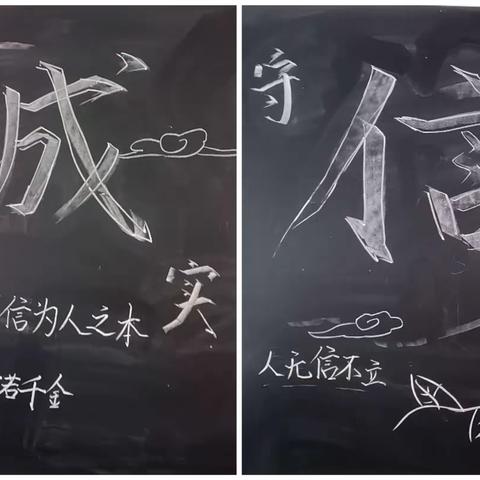 成
实
信为人之本
若千金
守
信
人无信不立